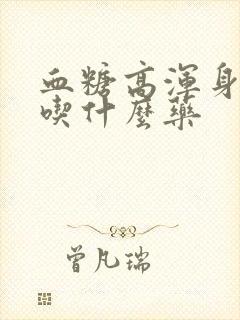 血糖高渾身
喫什麼藥
曾凡瑞